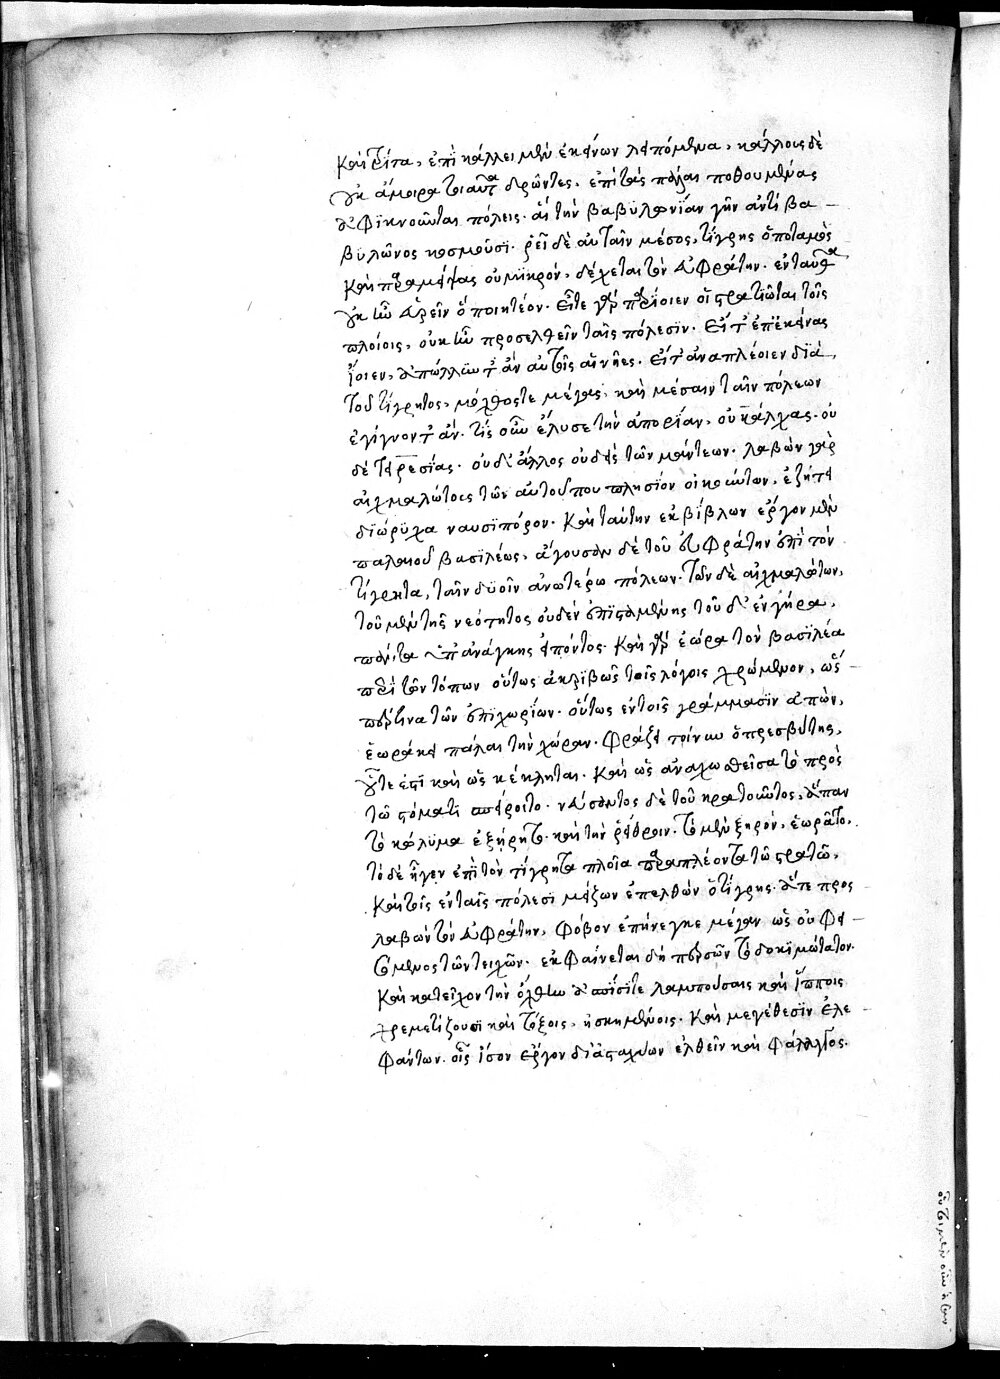 καὶ τρίτα, ἐπὶ κάλλει μὲν ἐκείνων λειπόμενα, κάλλους δὲ
οὐκ ἄμοιρα τοιαῦτα δρῶντες, ἐπὶ τὰς πάλαι ποθουμένας
ἀφικνοῦνται πόλεις. αἳ τὴν βαβυλωνίαν γῆν ἀντὶ βα-
βυλῶνος κοσμοῦσι. ῥεῖ δὲ αὐταῖν μέσος, τίγρης ὁ ποταμὸς
καὶ παραμείψας οὐ μικρὸν, δέχεται τὸν εὐφράτην. ἐνταῦθα
οὐκ ἦν εὑρεῖν ὃ ποιητέον. εἴτε γὰρ παρίοιεν οἱ στρατιῶται τοῖς
πλοίοις, οὐκ ἦν προσελθεῖν ταῖς πόλεσιν. εἴτ' ἐπ' ἐκείνας
ἴοιεν, ἀπώλλυντ' ἂν αὐτοῖς αἱ νῆες. εἴτ' ἀναπλέοιεν διὰ
τοῦ τίγρητος, μόχθος τε μέγας, καὶ μέσαιν ταῖν πόλεων
ἐγίγνοντ' ἄν. τίς οὖν ἔλυσε τὴν ἀπορίαν, οὐ κάλχας. οὐ
δὲ τειρεσίας. οὐδ' ἄλλος οὐδεὶς τῶν μάντεων. λαβὼν γὰρ
αἰχμαλώτους τῶν αὐτοῦ που πλησίον οἰκούντων, ἐζήτει
διώρυχα ναυσιπόρον. καὶ ταύτην ἐκ βίβλων ἔργον μὲν
παλαιοῦ βασιλέως, ἄγουσαν δὲ τὸν εὐφράτην ἐπὶ τὸν
τίγρητα, ταῖν δυοῖν ἀνωτέρω πόλεων. τῶν δὲ αἰχμαλώτων,
τοῦ μὲν τῆς νεότητος οὐδὲν ἐπισταμένης τοῦ δ' ἐν γήρᾳ,
πάντα ὑπ' ἀνάγκης εἰπόντος. καὶ γὰρ ἑώρα τὸν βασιλέα
περὶ τῶν τόπων οὕτως ἀκριβῶς τοῖς λόγοις χρώμενον, ὡς
τινα τῶν ἐπιχωρίων. οὕτως ἐν τοῖς γράμμασιν ἀπὼν,
ἑωράκει πάλαι τὴν χώραν. φράζει τοίνυν ὁ πρεσβύτης,
οὗ τέ ἐστι καὶ ὡς κέκληται. καὶ ὡς ἀναχωσθεῖσα τὸ πρὸς
τῷ στόματι σπείροιτο. νεύσαντος δὲ τοῦ κρατοῦντος, ἅπαν
τὸ κώλυμα ἐξῄρητο. καὶ τὴν ῥείθροιν. τὸ μὲν ξηρὸν, ἑωρᾶτο,
τὸ δὲ ἦγεν ἐπὶ τὸν τίγρητα πλοῖα παραπλέοντα τῷ στρατῷ,
καὶ τοῖς ἐν ταῖς πόλεσι μείζων ἐπελθὼν ὁ τίγρης. ἅτε προς
λαβὼν τὸν εὐφράτην, φόβον ἐπήνεγκε μέγαν ὡς οὐ φει
σόμενος τῶν τειχῶν. ἐκφαίνεται δὴ περσῶν τὸ δοκιμώτατον.
καὶ κατεῖχον τὴν ὄχθην ἀσπίσι τε λαμπούσαις καὶ ἵπποις
χρεμετίζουσι καὶ τόξοις, ἠσκημένοις. καὶ μεγέθεσιν ἐλε
φάντων. οἷς ἴσον ἔργον διὰ σταχύων ἐλθεῖν καὶ φάλαγγος.